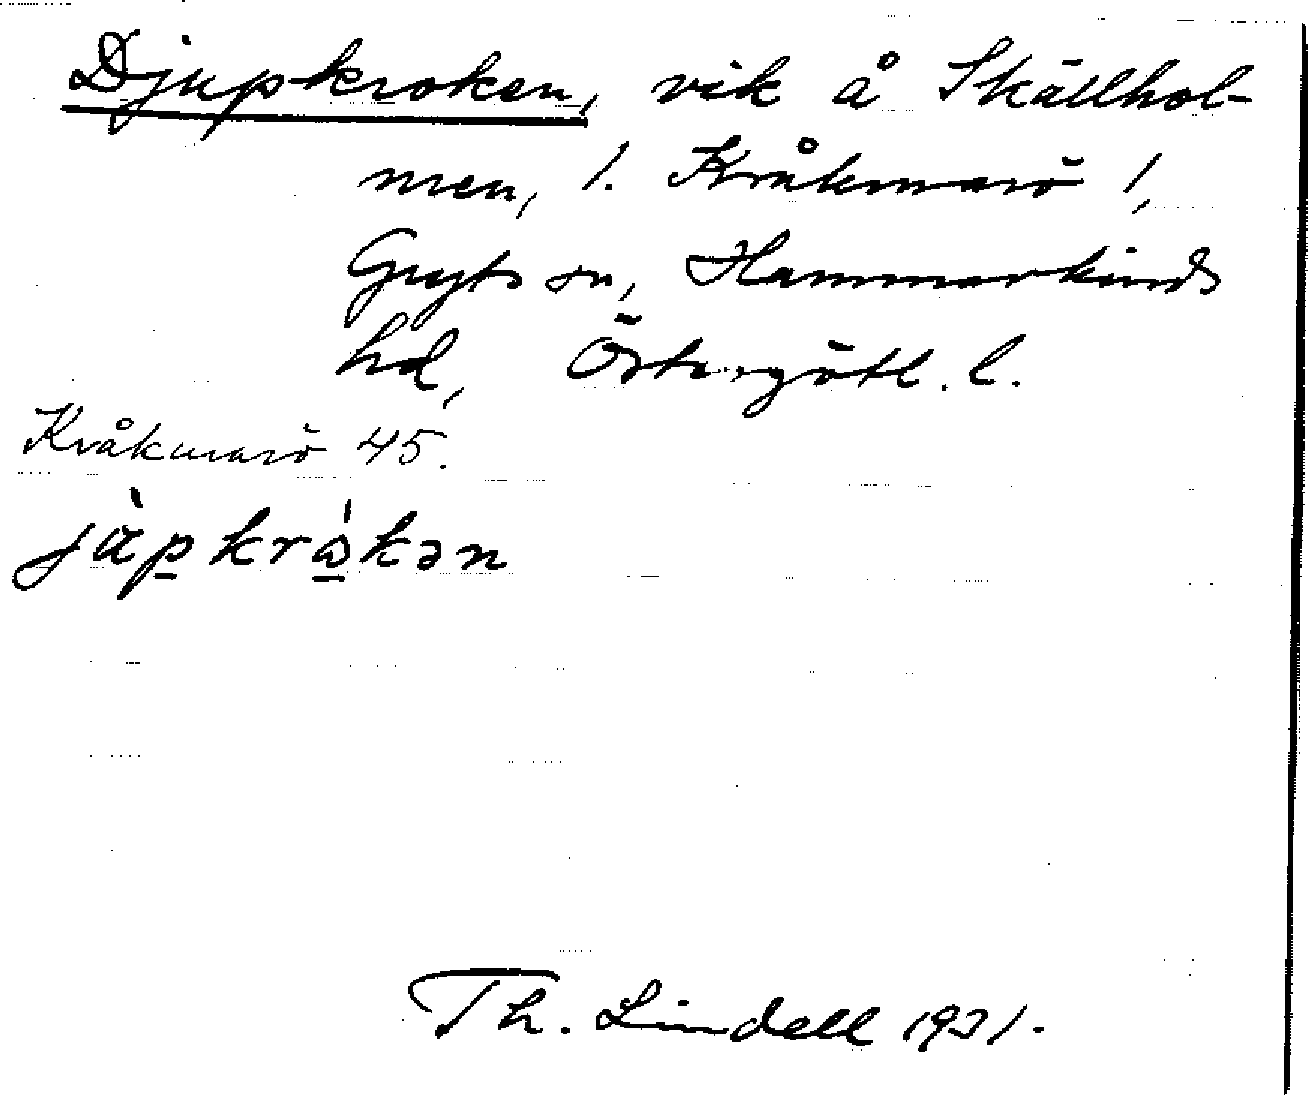 Djupkroken, vik å Skällhol-
men, /. Kråkmarö /,
Gryts sn, Hammarkinds
hd, Östergötl. l.
Kråkmarö 45.
Th. Lindell 1921.